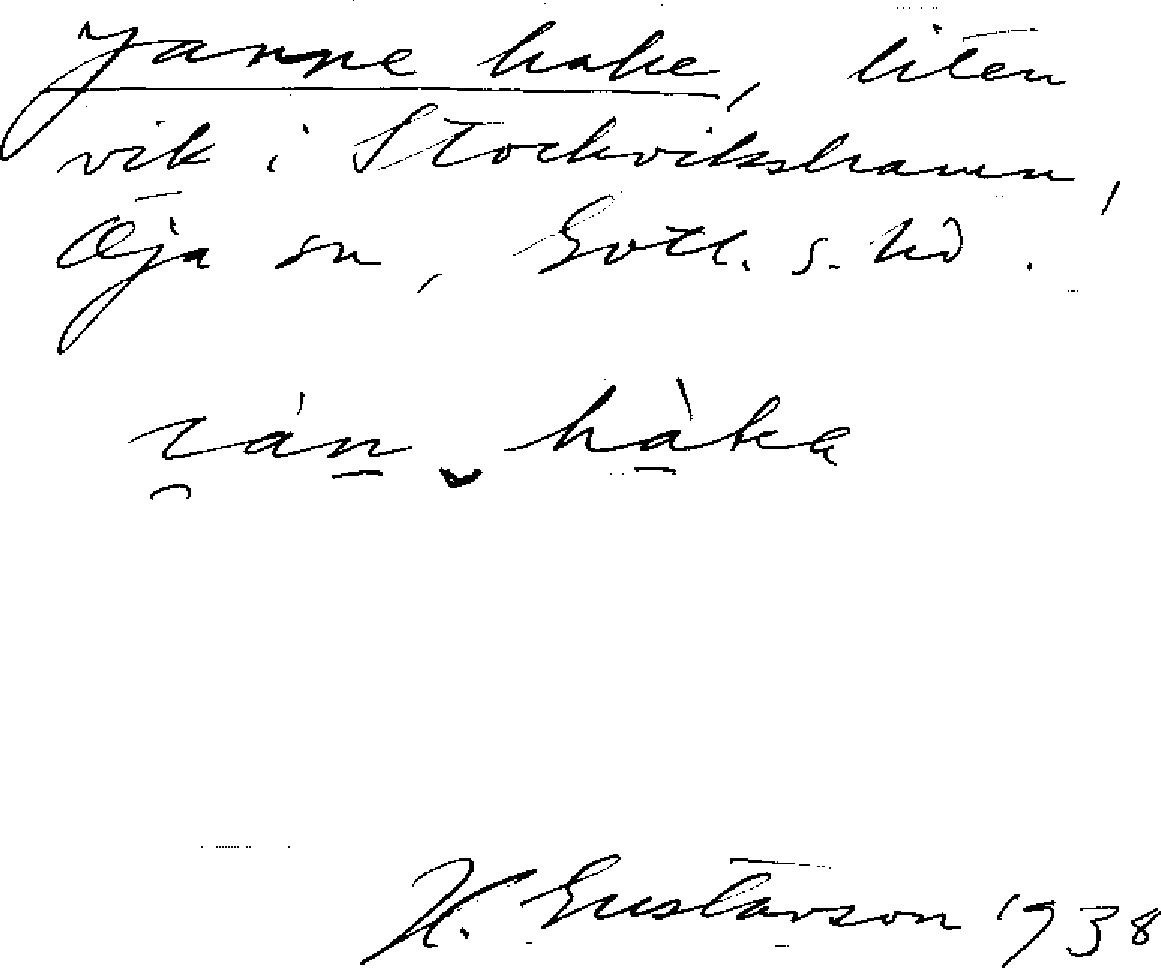 Janne hake, liten
vik i Stockvikshamn,
Öja sn, Gotl. s. hd.
H. Gustavson 1938